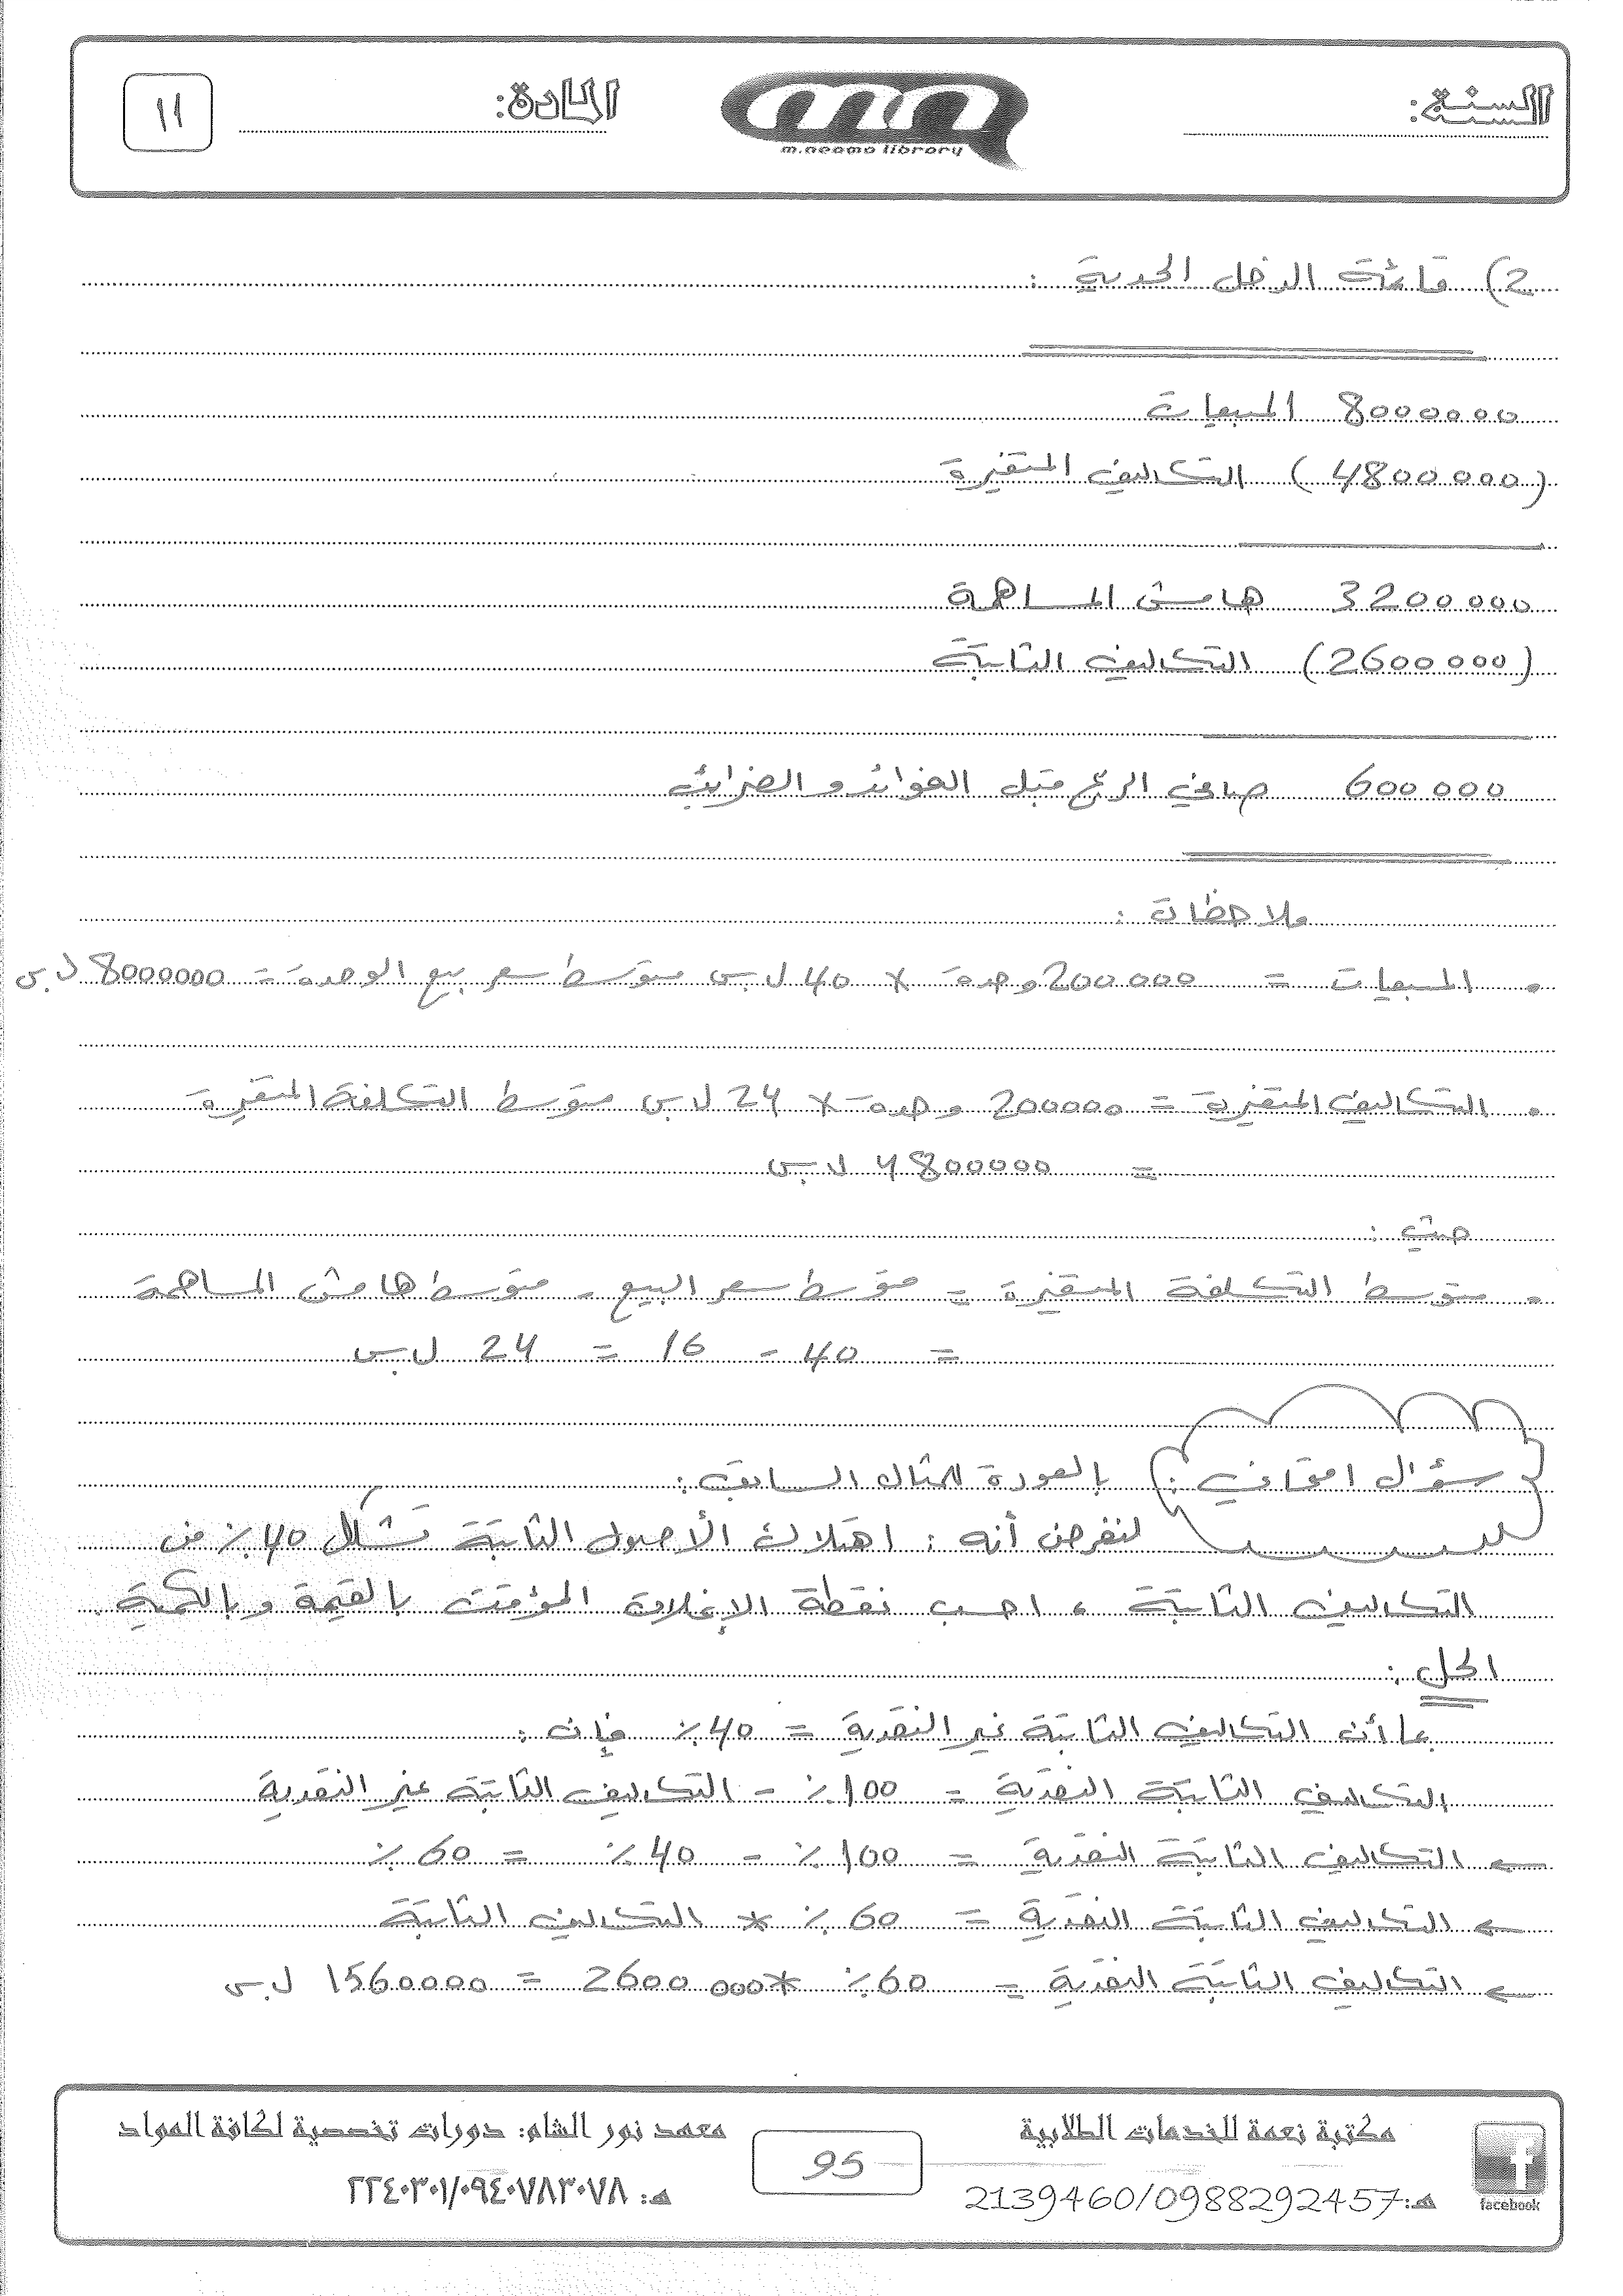 السنة:
m.neama library
المادة:
١١
2) قائمة الدخل الحدية :
8000000 المبيعات
(4800000) التكاليف المتغيرة
3200000 هامش المساهمة
(2600000) التكاليف الثابتة
600000 صافي الربح قبل الفوائد و الضرائب
ملاحظات :
• المبيعات = 200000 وحدة * 40 ل.س متوسط سعر بيع الوحدة = 8000000 ل.س
• التكاليف المتغيرة = 200000 وحدة * 24 ل.س متوسط التكلفة المتغيرة
= 4800000 ل.س
حيث :
• متوسط التكلفة المتغيرة = متوسط سعر البيع - متوسط هامش المساهمة
= 40 - 16 = 24 ل.س
سؤال اضافي : بالعودة للمثال السابق :
لنفرض أنه : اهتلاك الأصول الثابتة تشكل 40٪ من
التكاليف الثابتة ، احسب نقطة الإغلاق المؤقت بالقيمة وبالكمية .
الحل :
بما أن التكاليف الثابتة غير النقدية = 40٪ فإن :
التكاليف الثابتة النقدية = 100٪ - التكاليف الثابتة غير النقدية
← التكاليف الثابتة النقدية = 100٪ - 40٪ = 60٪
← التكاليف الثابتة النقدية = 60٪ * التكاليف الثابتة
← التكاليف الثابتة النقدية = 60٪ * 2600000 = 1560000 ل.س
مكتبة نعمة للخدمات الطلابية
هـ: 2139460/0988292457
facebook
95
معهد نور الشام: دورات تخصصية لكافة المواد
هـ: ٢٢٤٠٣٠١/٠٩٤٠٧٨٣٠٧٨